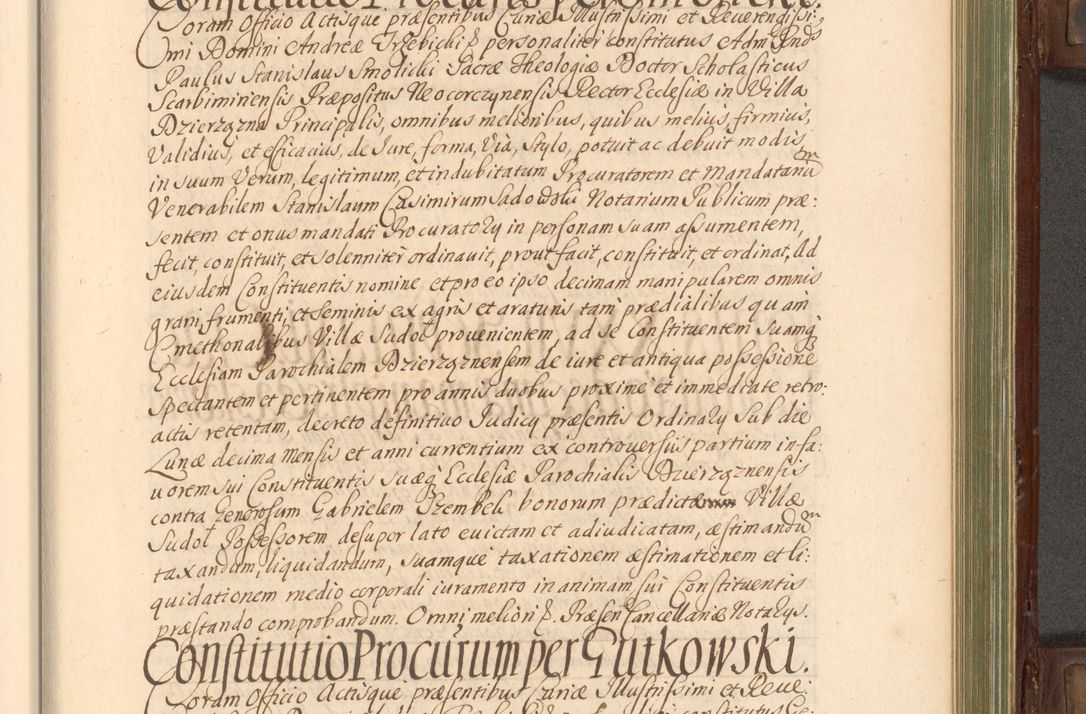 Constitutio Procuris per Smolicki.
Coram Officio Actisque præsentibus Curiæ Illustrissimi et Reverendissi:
mi Domini Andreæ Trzebicki &. personaliter constitutus Adm Rnds
Paulus Stanislaus Smolicki Sacræ Theologiæ Doctor Scholasticus
Scarbimiriensis Præpositus Neocorczynensis Rector Ecclesiæ in Villa
Dzierzązna Principalis, omnibus melioribus, quibus melius, firmius,
Validius, et efficacius, de Jure, forma, Via, Stylo, potuit ac debuit modis
in suum Verum, legitimum, et indubitatum Procuratorem et Mandatariũ
Venerabilem Stanislaum Casimirum Sadowski Notarium Publicum præ:
sentem et onus mandati Procuratorÿ in personam suam assumentem,
fecit, constituit, et solenniter ordinauit, prout facit, constituit, et ordinat, Ad
eiusdem Constituentis nomine et pro eo ipso decimam manipularem omnis
grani frumenti, et seminis ex agris et araturis tam prædialibus quam
Cmethonalibus Villæ Sudoł prouenientem, ad se Constituentem Suamq̃
Ecclesiam Parochialem Dzierząznensem de iure et antiqua possessione
spectantem et pertinentem pro annis duobus proxime et immediate retro:
actis retentam, decreto definitiuo Judicÿ præsentis Ordinarÿ Sub die
Lunæ decima Mensis et anni currentium ex controversiis partium in fa:
uorem sui Constituentis suæq̃ Ecclesiæ Parochialis Dzierząznensis
contra Generosum Gabrielem Szembek bonorum prædictæ Villæ
Sudoł Possessorem desuper lato euictam et adiudicatam, æstimandũ
taxandum, liquidandum, suamque taxationem æstimationem et li:
quidationem medio corporali iuramento in animam sui Constituentis
præstando comprobandum. Omni meliori &. Præsen Cancellariæ Notarÿs.
Constitutio Procurum per Gutkowski.
Coram Officio Actisque præsentibus Curiæ Illustrissimi et Reue: